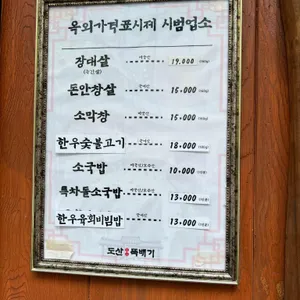 옥외가격표시제 시범업소
장대살 19,000
돈안창살 15,000
소막창 15,000
한우숯불고기 18,000
소국밥 10,000
특차돌소국밥 13,000
한우육회비빔밥 13,000
도산 뚝배기